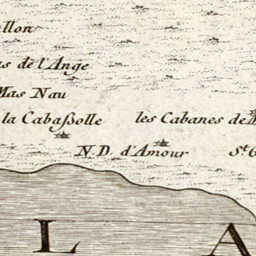 llon
s de l'Ange
Mas Nau
la Cabaſsolle
les Cabanes de
N.D. d'Amour
St
L A